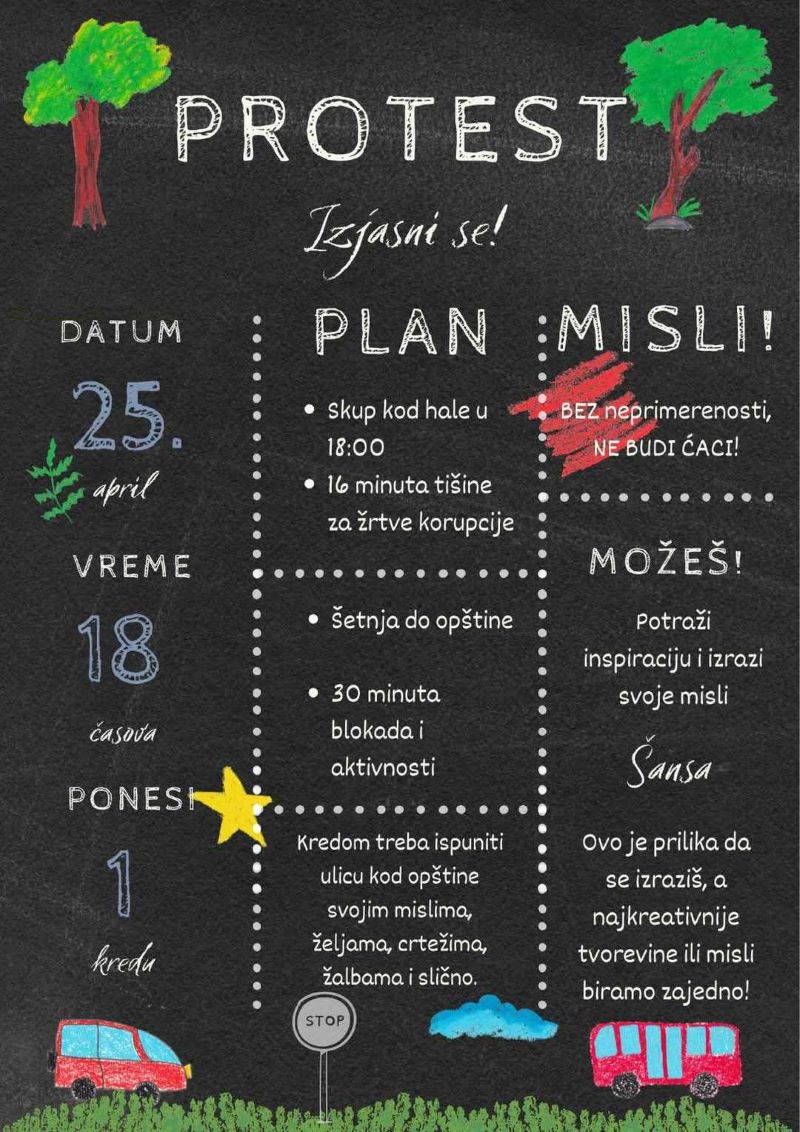 PROTEST
Izjasni se!
DATUM
25.
april
VREME
18
časova
PONESI
1
kredu
PLAN
Skup kod hale u
18:00
16 minuta tišine
za žrtve korupcije
Šetnja do opštine
30 minuta
blokada i
aktivnosti
Kredom treba ispuniti
ulicu kod opštine
svojim mislima,
željama, crtežima,
žalbama i slično.
STOP
MISLI!
BEZ neprimerenosti,
NE BUDI ĆACI!
MOŽEŠ!
Potraži
inspiraciju i izrazi
svoje misli
Šansa
Ovo je prilika da
se izraziš, a
najkreativnije
tvorevine ili misli
biramo zajedno!